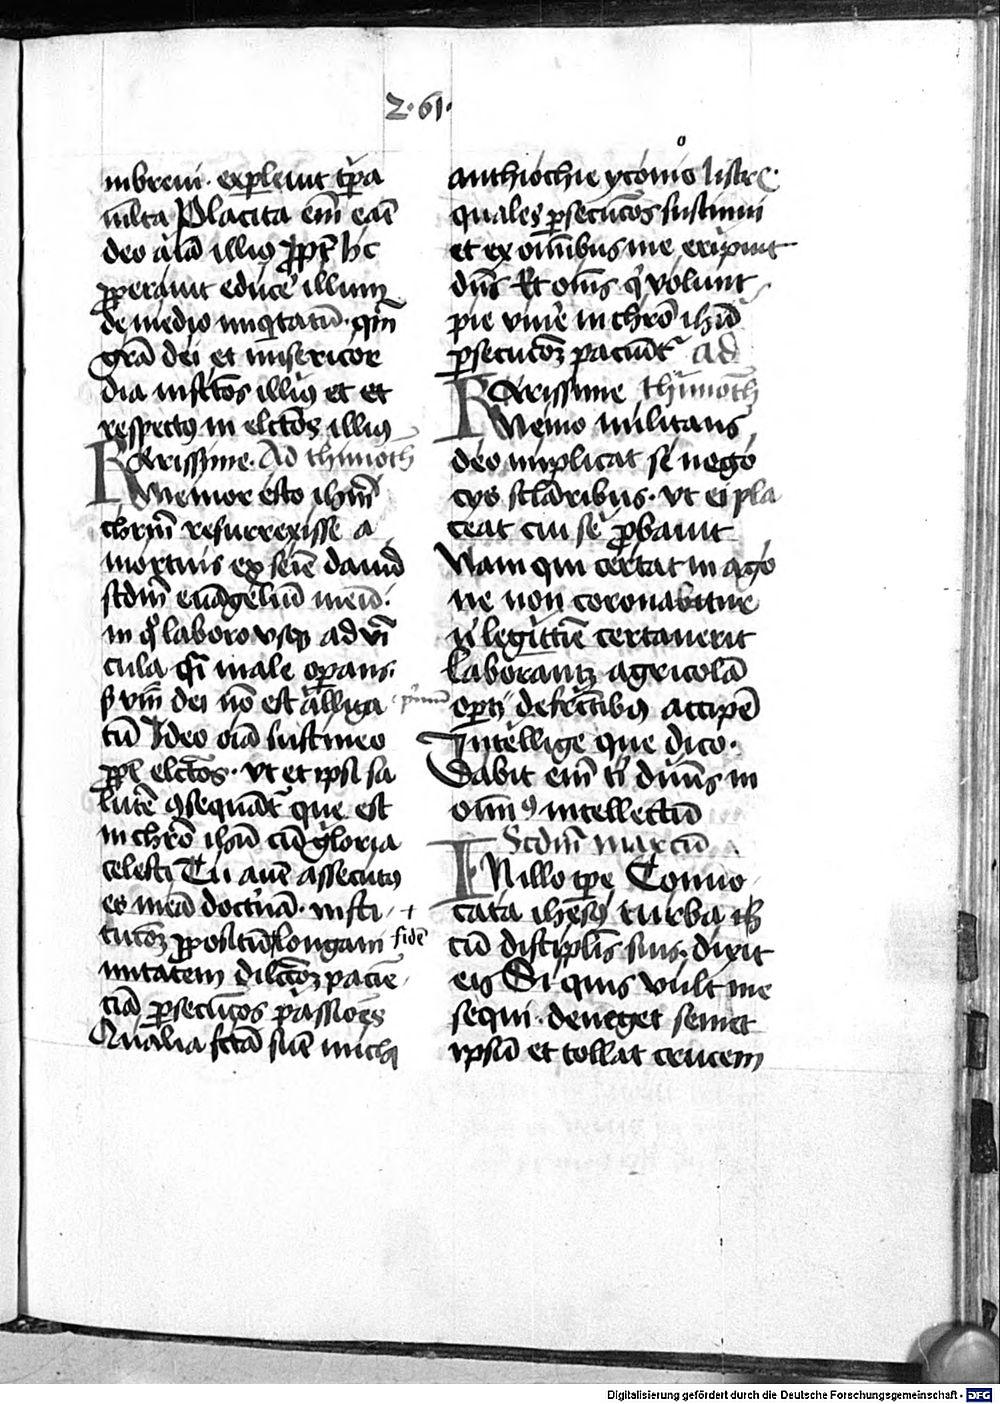 2·61·
inbreui· expleuit tp̄a
m̄lta Placita em̄ erat
deo aīa illius ꝓpt̄ hͦ
ꝓperauit educe̾ illum
de medio iniqtatū· qm̄
grā dei et misericor
dia in sc̄tos illius et et
respectus in elc̄tos illius
Karissime· Ad thimoth̄
Memor esto ihm̄
chrm̄ resurrexisse a
mortuis ex sem̄e dauid
scdm̄ euāgeliū meū·
in qͦ laboro vsqꝫ ad vī
cula qͣi male oꝑans·
ꝫ vm̄ dei nō est alliga
tū Ideo oīa sustineo
ꝓpt̄ elc̄tos· vt et ipsi sa
lutē ꝯsequāt̾ que est
in chrō ihū cū gloria
celesti Tu autē assecutus
es meā doctⁱnā· insti +
tucōꝫ ꝓpositū longani fidē
mitatem dilc̄cōꝫ paciē
ciā ꝑsecuc̄ōs passiōēs
Qualia fc̄tā sūt michi
anthiochie yconio listre·
quales ꝑsecuc̄ōs sustinui
et ex oīnibus me eripuit
dn̄s Et om̄s qⁱ volunt
pie viue̾ in chrō ihū
ꝑsecucōꝫ paciūt̾ ad
Karissime thimoth̄
Nemo militans
deo implicat se nego
cys sclāribus· vt ei pla
ceat cui se ꝓbauit
Nam qui certat in ago
ne non coronabitur
nͥ legittīe certauerit
Laborantꝫ agricolā
pⁱmū oꝑtꝫ de fructibus accipē
Intellige que dico·
Dabit em̄ tͥ dn̄us in
oīnibꝯ intellectū
Scdm̄ marcū
IN illo tꝑe Conuo
cata ihesus turba ih̄
cū discipulis suis· dixit
eis Si quis vult me
sequi· deneget semet
ipsū et tollat crucem
Digitalisierung gefördert durch die Deutsche Forschungsgemeinschaft · DFG